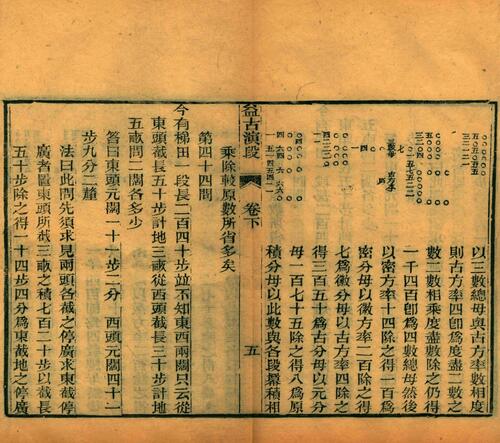 以三數總母與古方率相度
則古方率四卽爲度盡二數之
數二數相乘度盡數除之仍得
一千四百卽爲四數總母然後
以密方率十四除之得一百爲
密分母以徽方率二百除之得
七爲徽分母以古方率四除之
得三百五十爲古分母以元分
母一百七十五除之得八爲原
積分母以此數與各段冪積相
益古演段 卷下 五
乘除較原數所省多矣
第四十四問
今有梯田一段長二百四十步並不知東西兩闊只云從
東頭截長五十步計地三畝從西頭截長三十步計地
五畝問二闊各多少
答曰東頭元闊一十一步二分 西頭元闊四十二
步九分二釐
法曰此問先須求見兩頭各截之停廣求東截停
廣者置東頭所截三畝之積七百二十步以截長
五十步除之得一十四步四分爲東截地之停廣